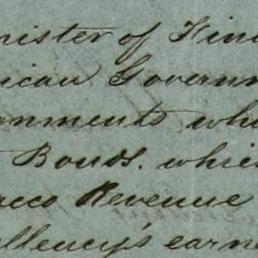 nister of Fin
ican Governm
nments wh
Bonds. whic
acco Revenue
ellency's earne